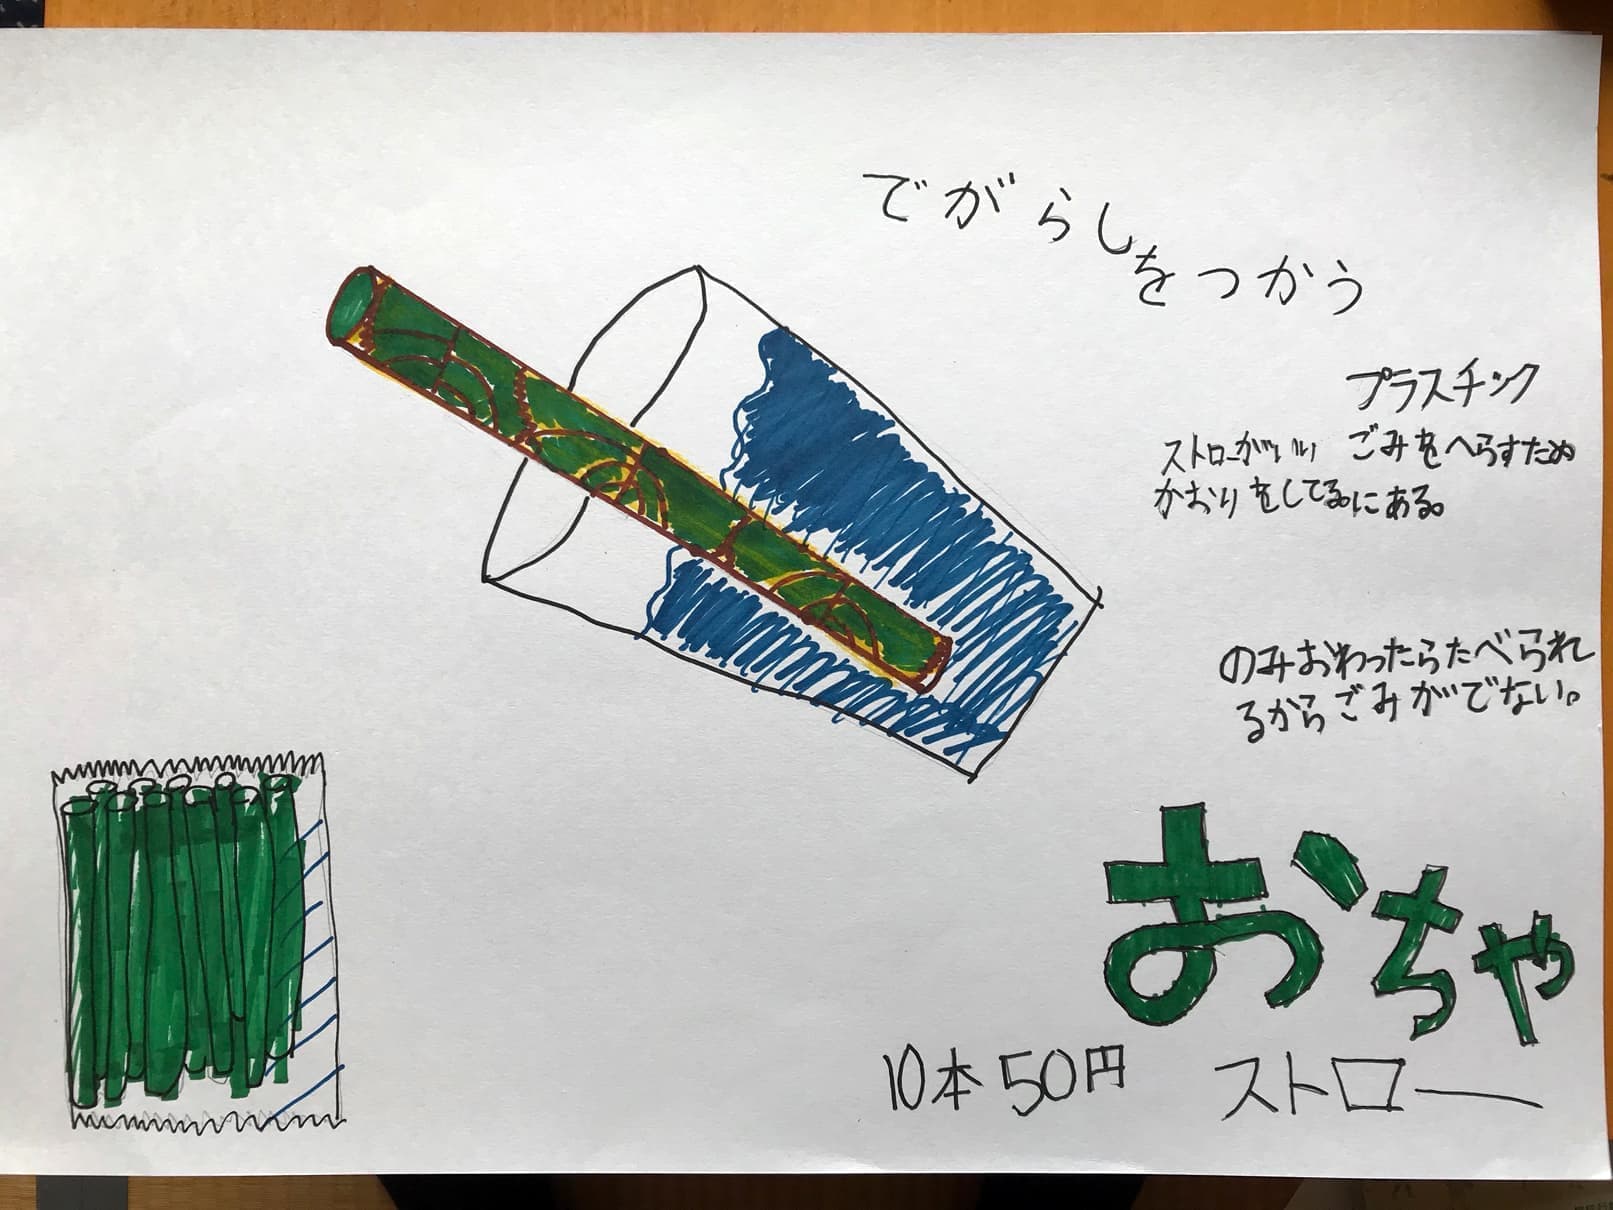 でがらしをつかう
プラスチック
ごみをへらすため
にある。
ストローがいい
かおりをしてる。
のみおわったらたべられ
るからごみがでない。
おちゃ
ストロー
10本50円